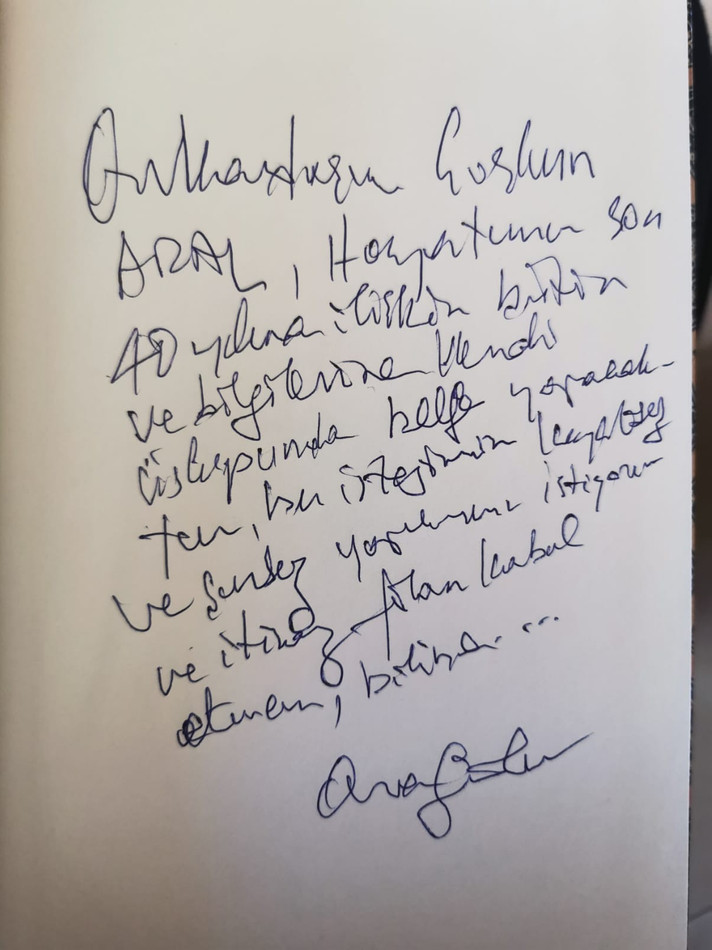 Arkadaşım Coşkun
ARAL, Hayatımın son
40 yılına ilişkin bütün
ve bilgilerine kendi
üslupunda belge yapacak-
tır, bu isteğimin kayıtsız
ve şartsız yapılmasını istiyorum
ve itiraz filan kabul
etmem, biline ...
Ara Güler